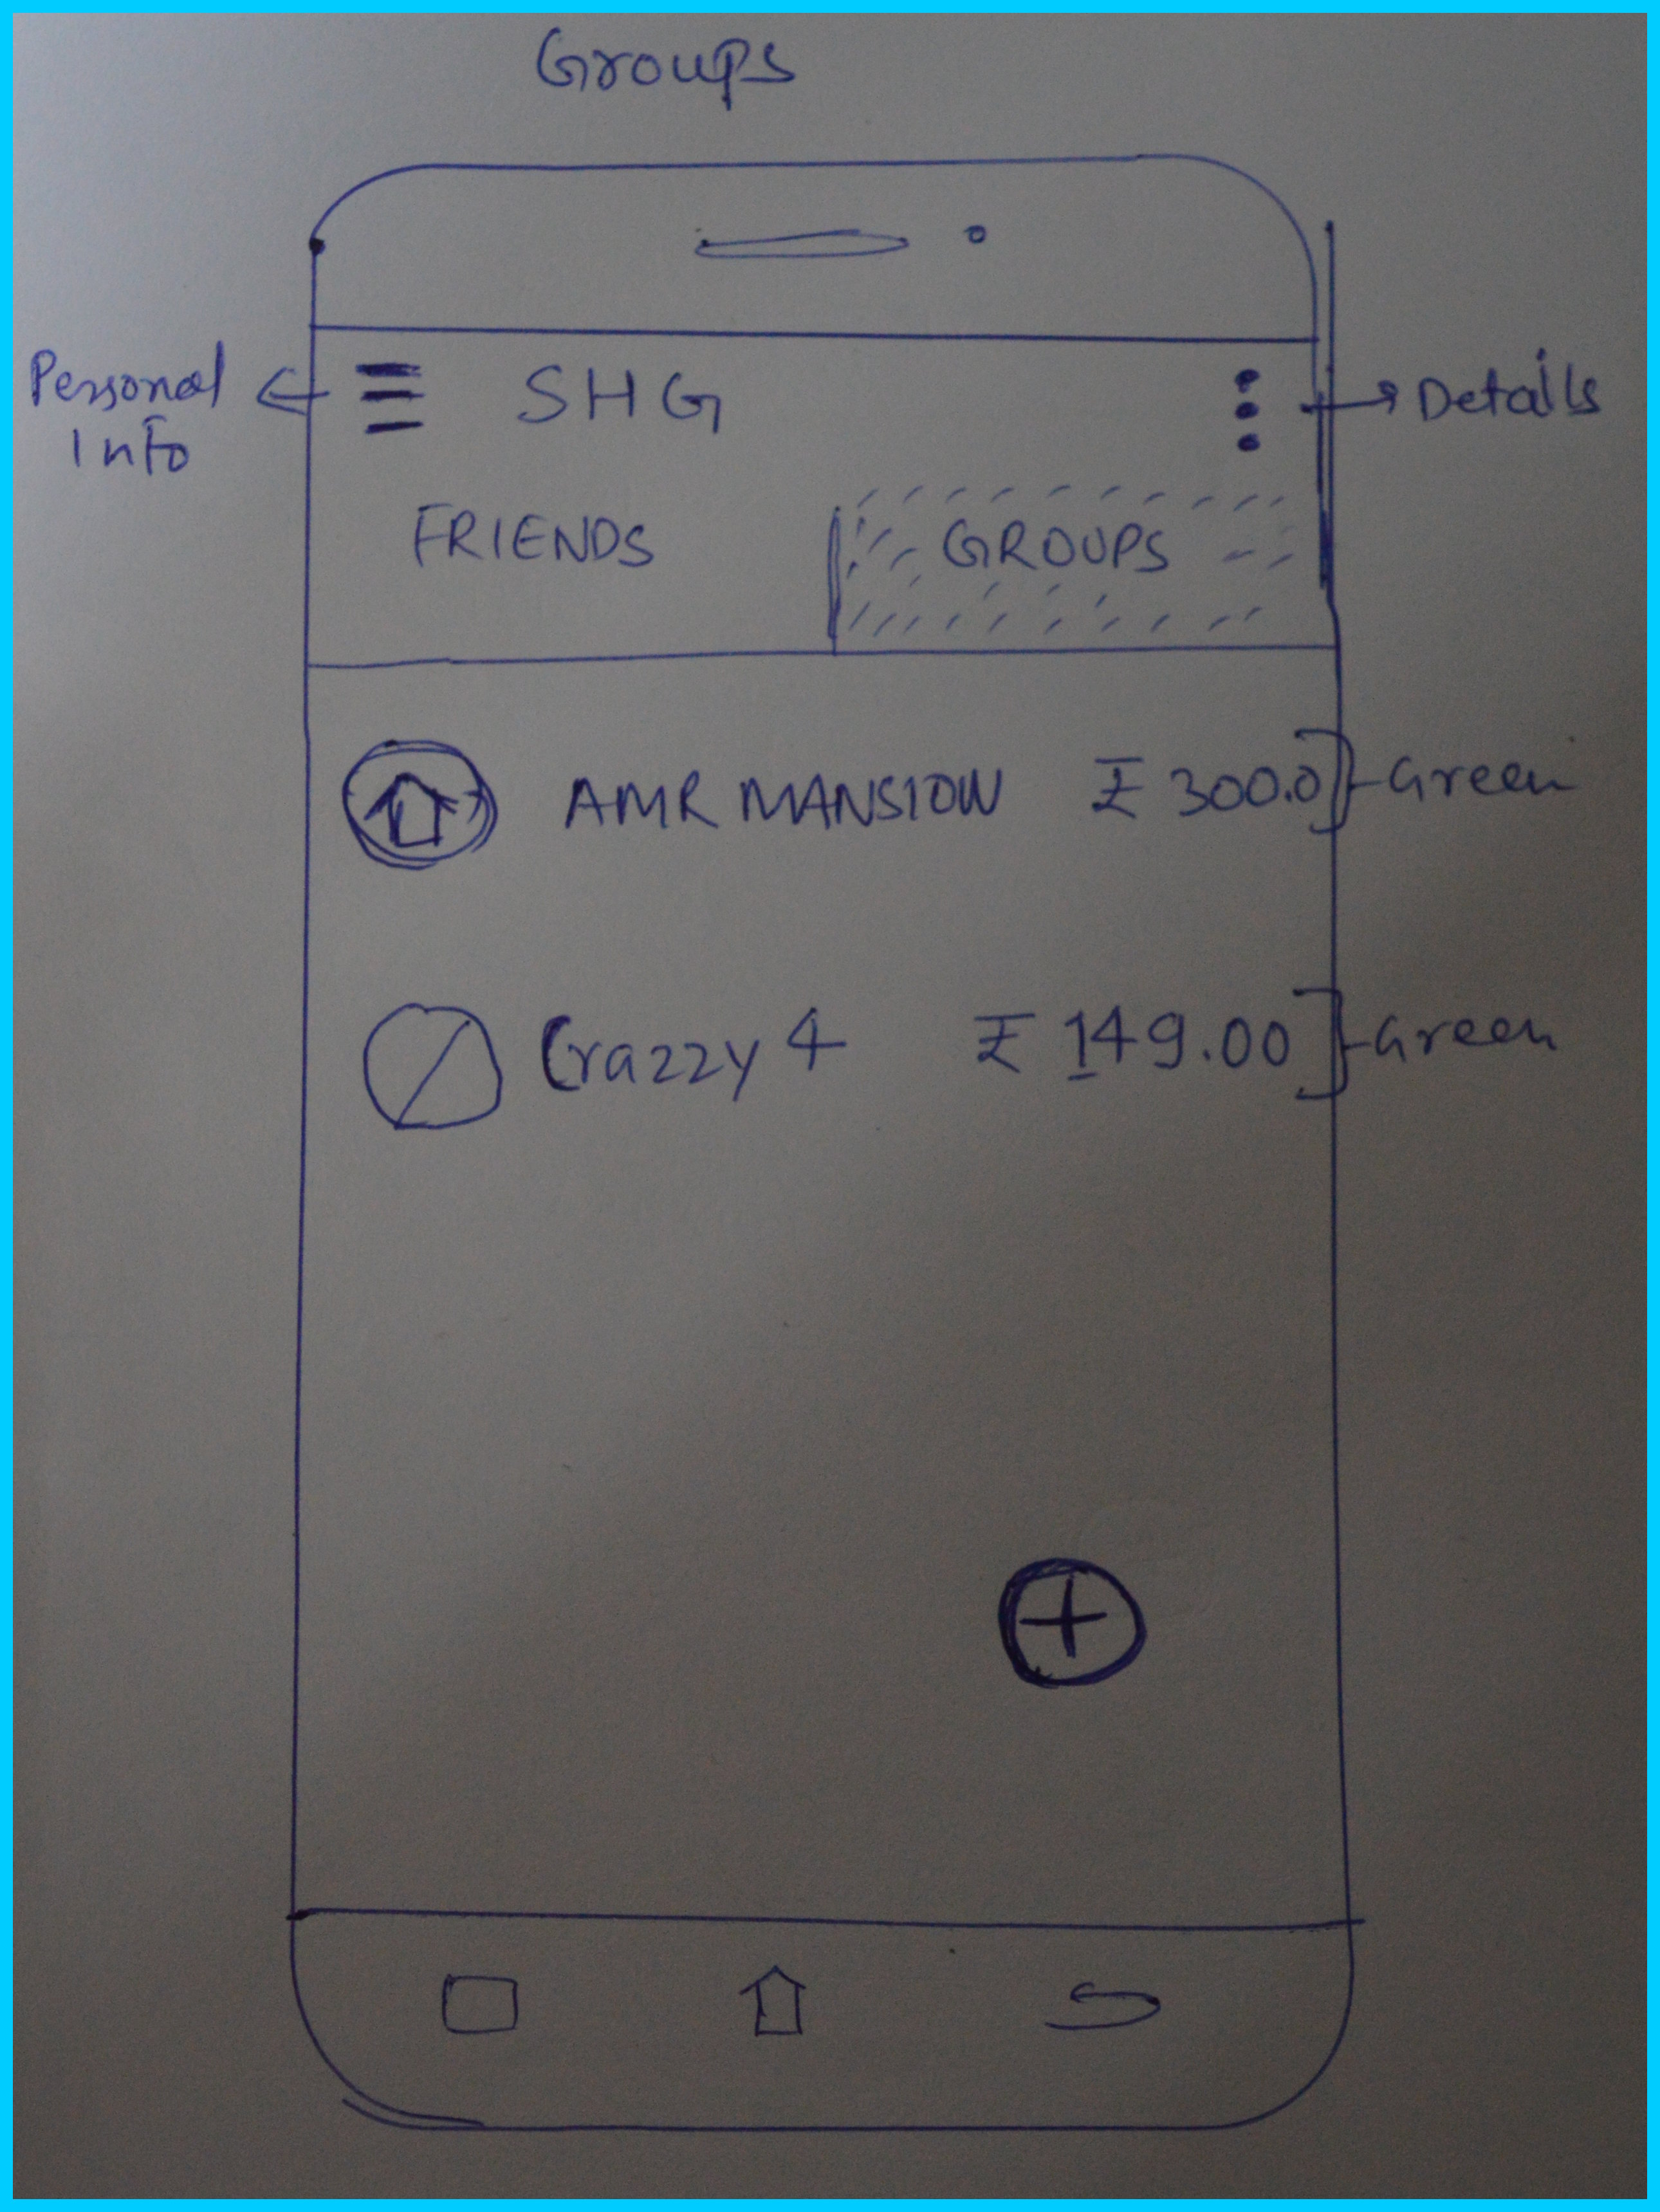 Groups
Personal
Info
SHG
Details
FRIENDS
GROUPS
AMR MANSION ₹ 300.0 Green
Crazzy 4 ₹ 149.00 Green